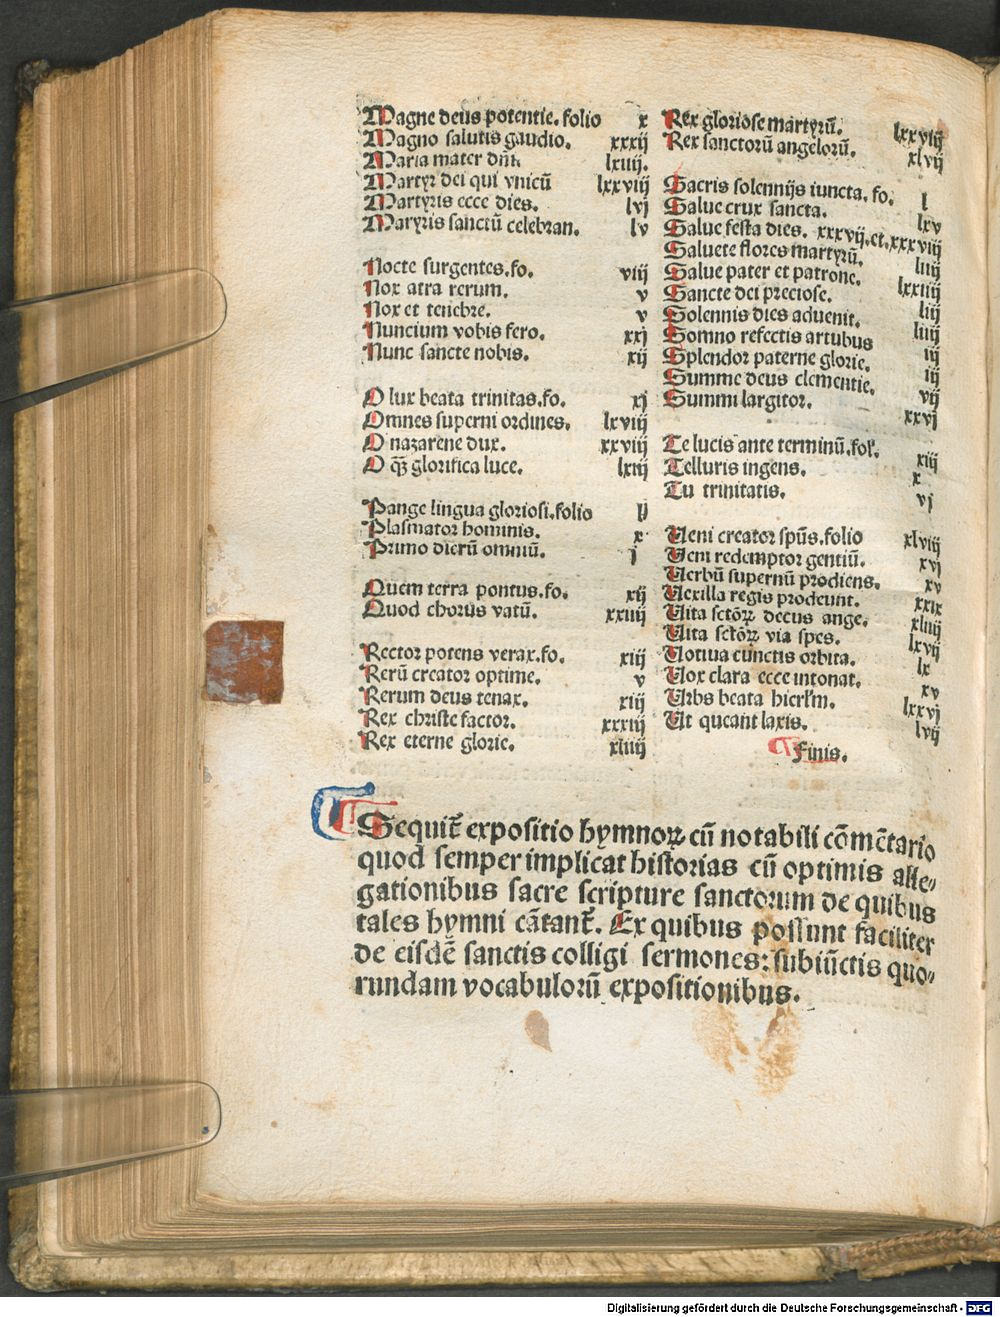 Magne deus potentie. folio x
Magno salutis gaudio. xxxij
Maria mater dn̄i lxiiij.
Martyr dei qui vnicū lxxviij
Martyris ecce dies. lvj
Maryris sanctū celebran. lv
Nocte surgentes. fo. viij
Nox atra rerum. v
Nox et tenebre. v
Nuncium vobis fero. xxj
Nunc sancte nobis. xij
O lux beata trinitas. fo. xj
Omnes superni ordines. lxviij
O nazarene dux. xxviij
O qȝ glorifica luce. lxiij
Pange lingua gloriosi. folio lj
Plasmator hominis. x
Primo dierū omniū. j
Quem terra pontus. fo. xij
Quod chorus vatū. xxiiij
Rector potens verax. fo. xiij
Rerū creator optime. v
Rerum deus tenax. xiij
Rex christe factor. xxxiij
Rex eterne glorie. xliiij
Rex gloriose martyrū. lxxviij
Rex sanctorū angelorū. xlvij
Sacris solennijs iuncta. fo. l
Salue crux sancta. lxv
Salue festa dies. xxxvij. et. xxxviij
Saluete flores martyrū. liiij
Salue pater et patrone. lxxiiij
Sancte dei preciose. liij
Solennis dies aduenit. liiij
Somno refectis artubus iij
Splendor paterne glorie. iij
Summe deus clementie. vij
Summi largitor. xxvj
Te lucis ante terminū. fol'. xiij
Telluris ingens. x
Tu trinitatis. vj
Ueni creator spūs. folio xlviij
Ueni redemptor gentiū. xvj
Uerbū supernū prodiens. xv
Uexilla regis prodeunt. xxix
Uita sctōꝝ decus ange. xliiij
Uita sctōꝝ via spes. lxvij
Uotiua cunctis orbita. lx
Uox clara ecce intonat. xv
Urbs beata hierl'm. lxxvj
Ut queant laxis. lvij
¶ Finis.
¶ Sequit᷑ expositio hymnoꝝ cū notabili cōmētario
quod semper implicat historias cū optimis alle⸗
gationibus sacre scripture sanctorum de quibus
tales hymni cātant᷑. Ex quibus possunt faciliter
de eisdē sanctis colligi sermones: subiūctis quo⸗
rundam vocabulorū expositionibus.
Digitalisierung gefördert durch die Deutsche Forschungsgemeinschaft - DFG